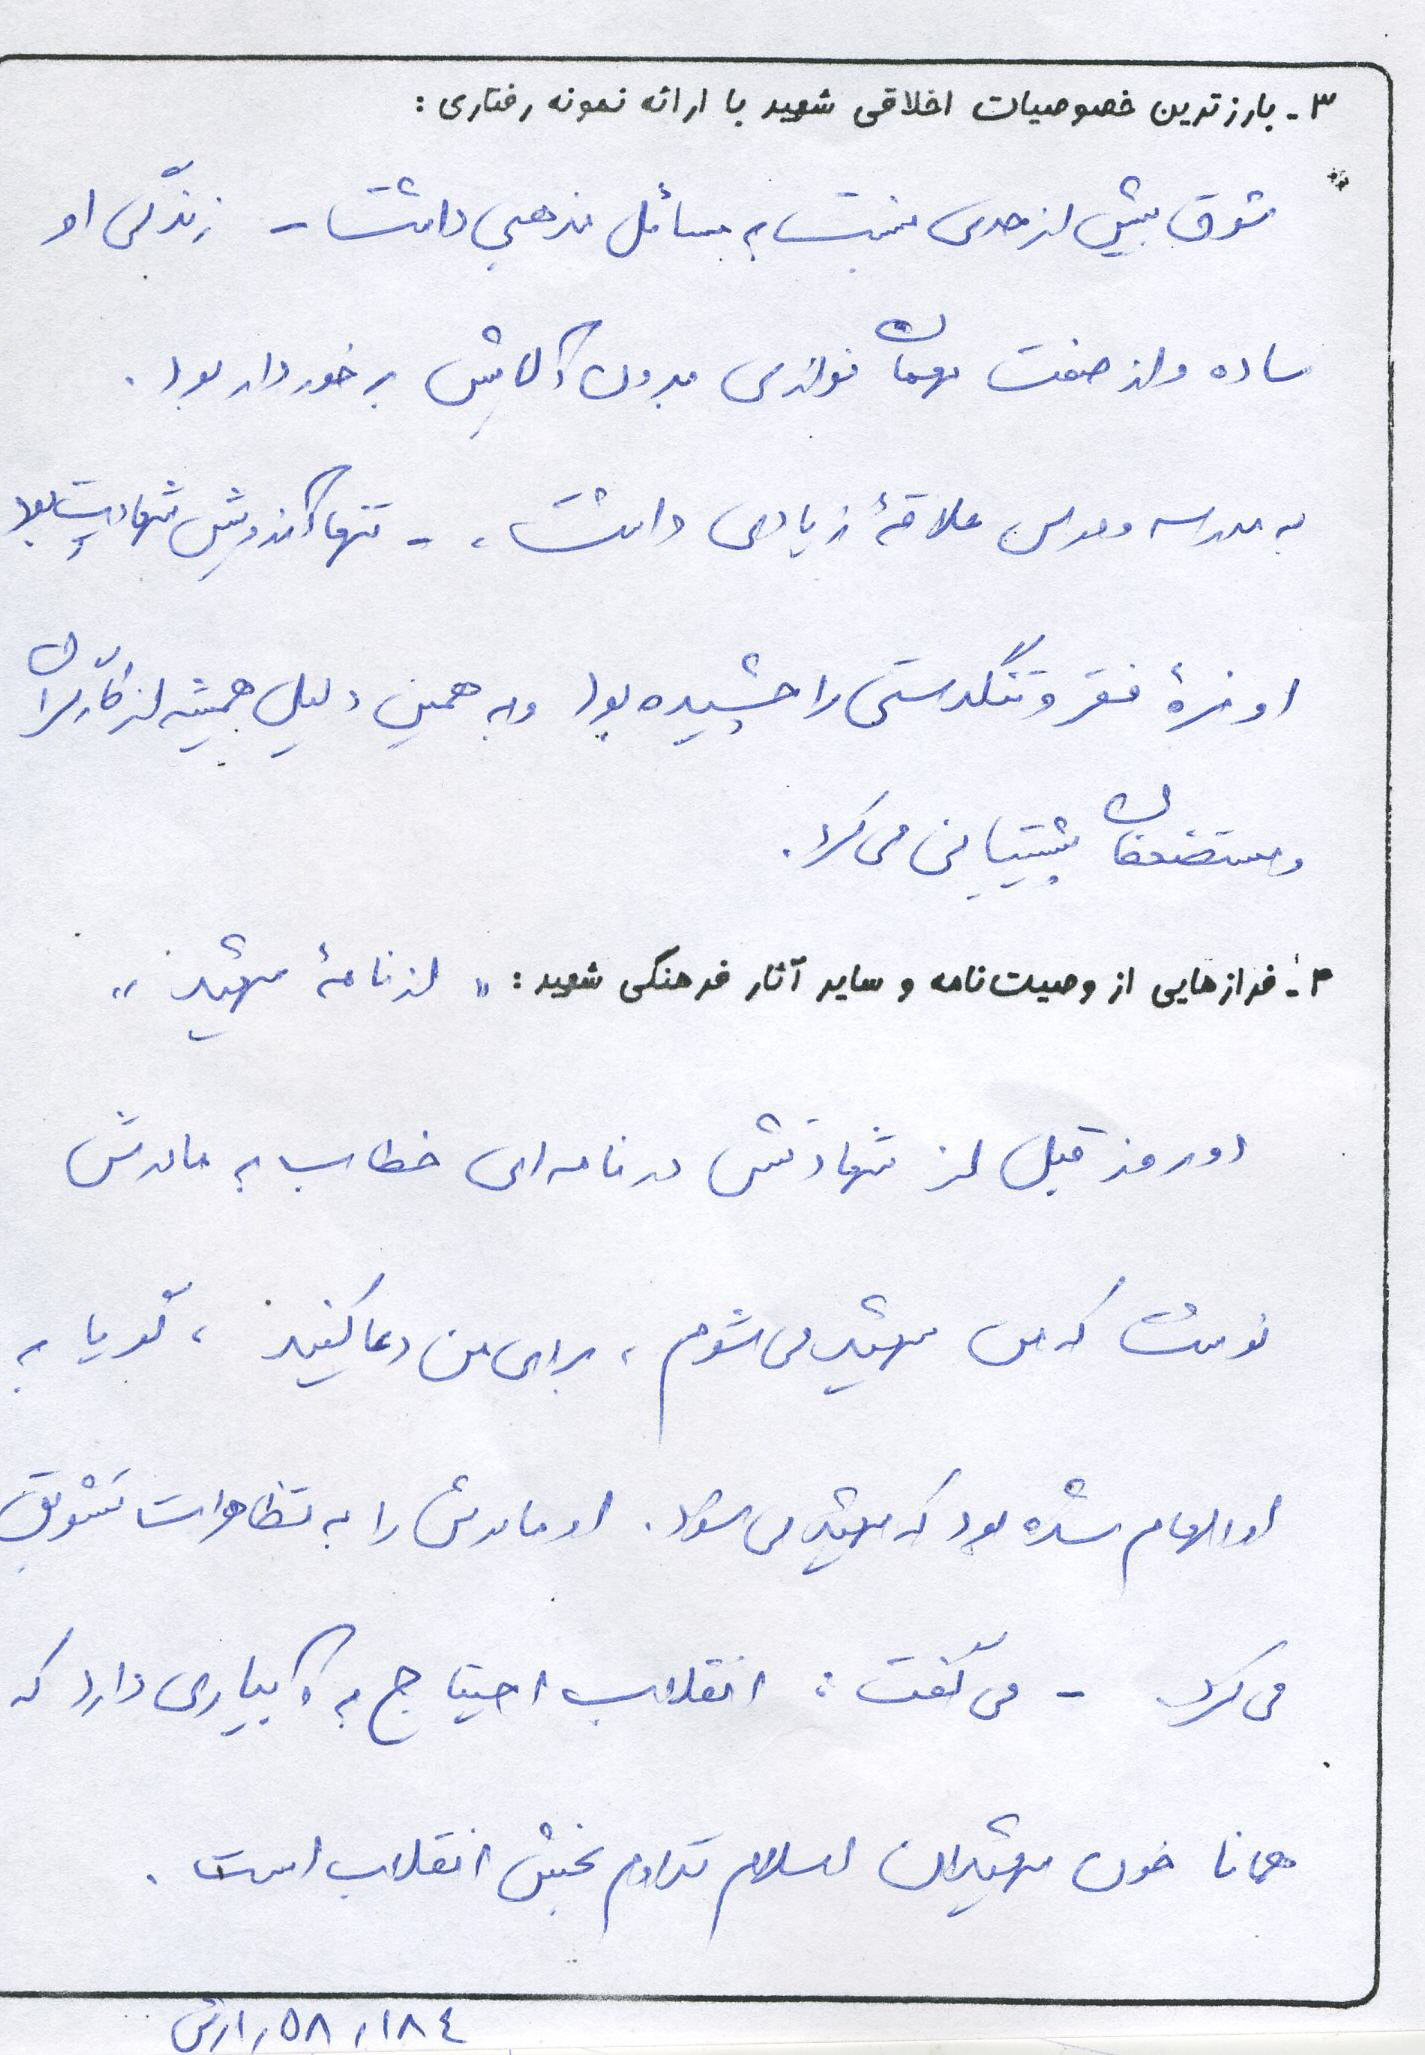 ۳- بارزترین خصوصیات اخلاقی شهید با ارائه نمونه رفتاری :
شوق بیش از حدی نسبت به مسائل مذهبی داشت - زندگی او
ساده و از صفت مهمان نوازی بدون آلایش برخوردار بود .
به مدرسه و درس علاقهٔ زیادی داشت ، - تنها آرزویش شهادت بود
او مزهٔ فقر و تنگدستی را چشیده بود و به همین دلیل همیشه از کارگران
و مستضعفان پشتیبانی می کرد .
۴- فرازهایی از وصیت‌نامه و سایر آثار فرهنگی شهید : " از نامهٔ شهید "
دو روز قبل از شهادتش در نامه ای خطاب به مادرش
نوشت که من شهید می شوم ، برای من دعا کنید ، گویا به
او الهام شده بود که شهید می شود . او مادرش را به تظاهرات تشویق
می کرد - می گفت : انقلاب احتیاج به آبیاری دارد که
همانا خون شهیدان اسلام تداوم بخش انقلاب است .
۱۸۴ , ۵۸ , ارتش